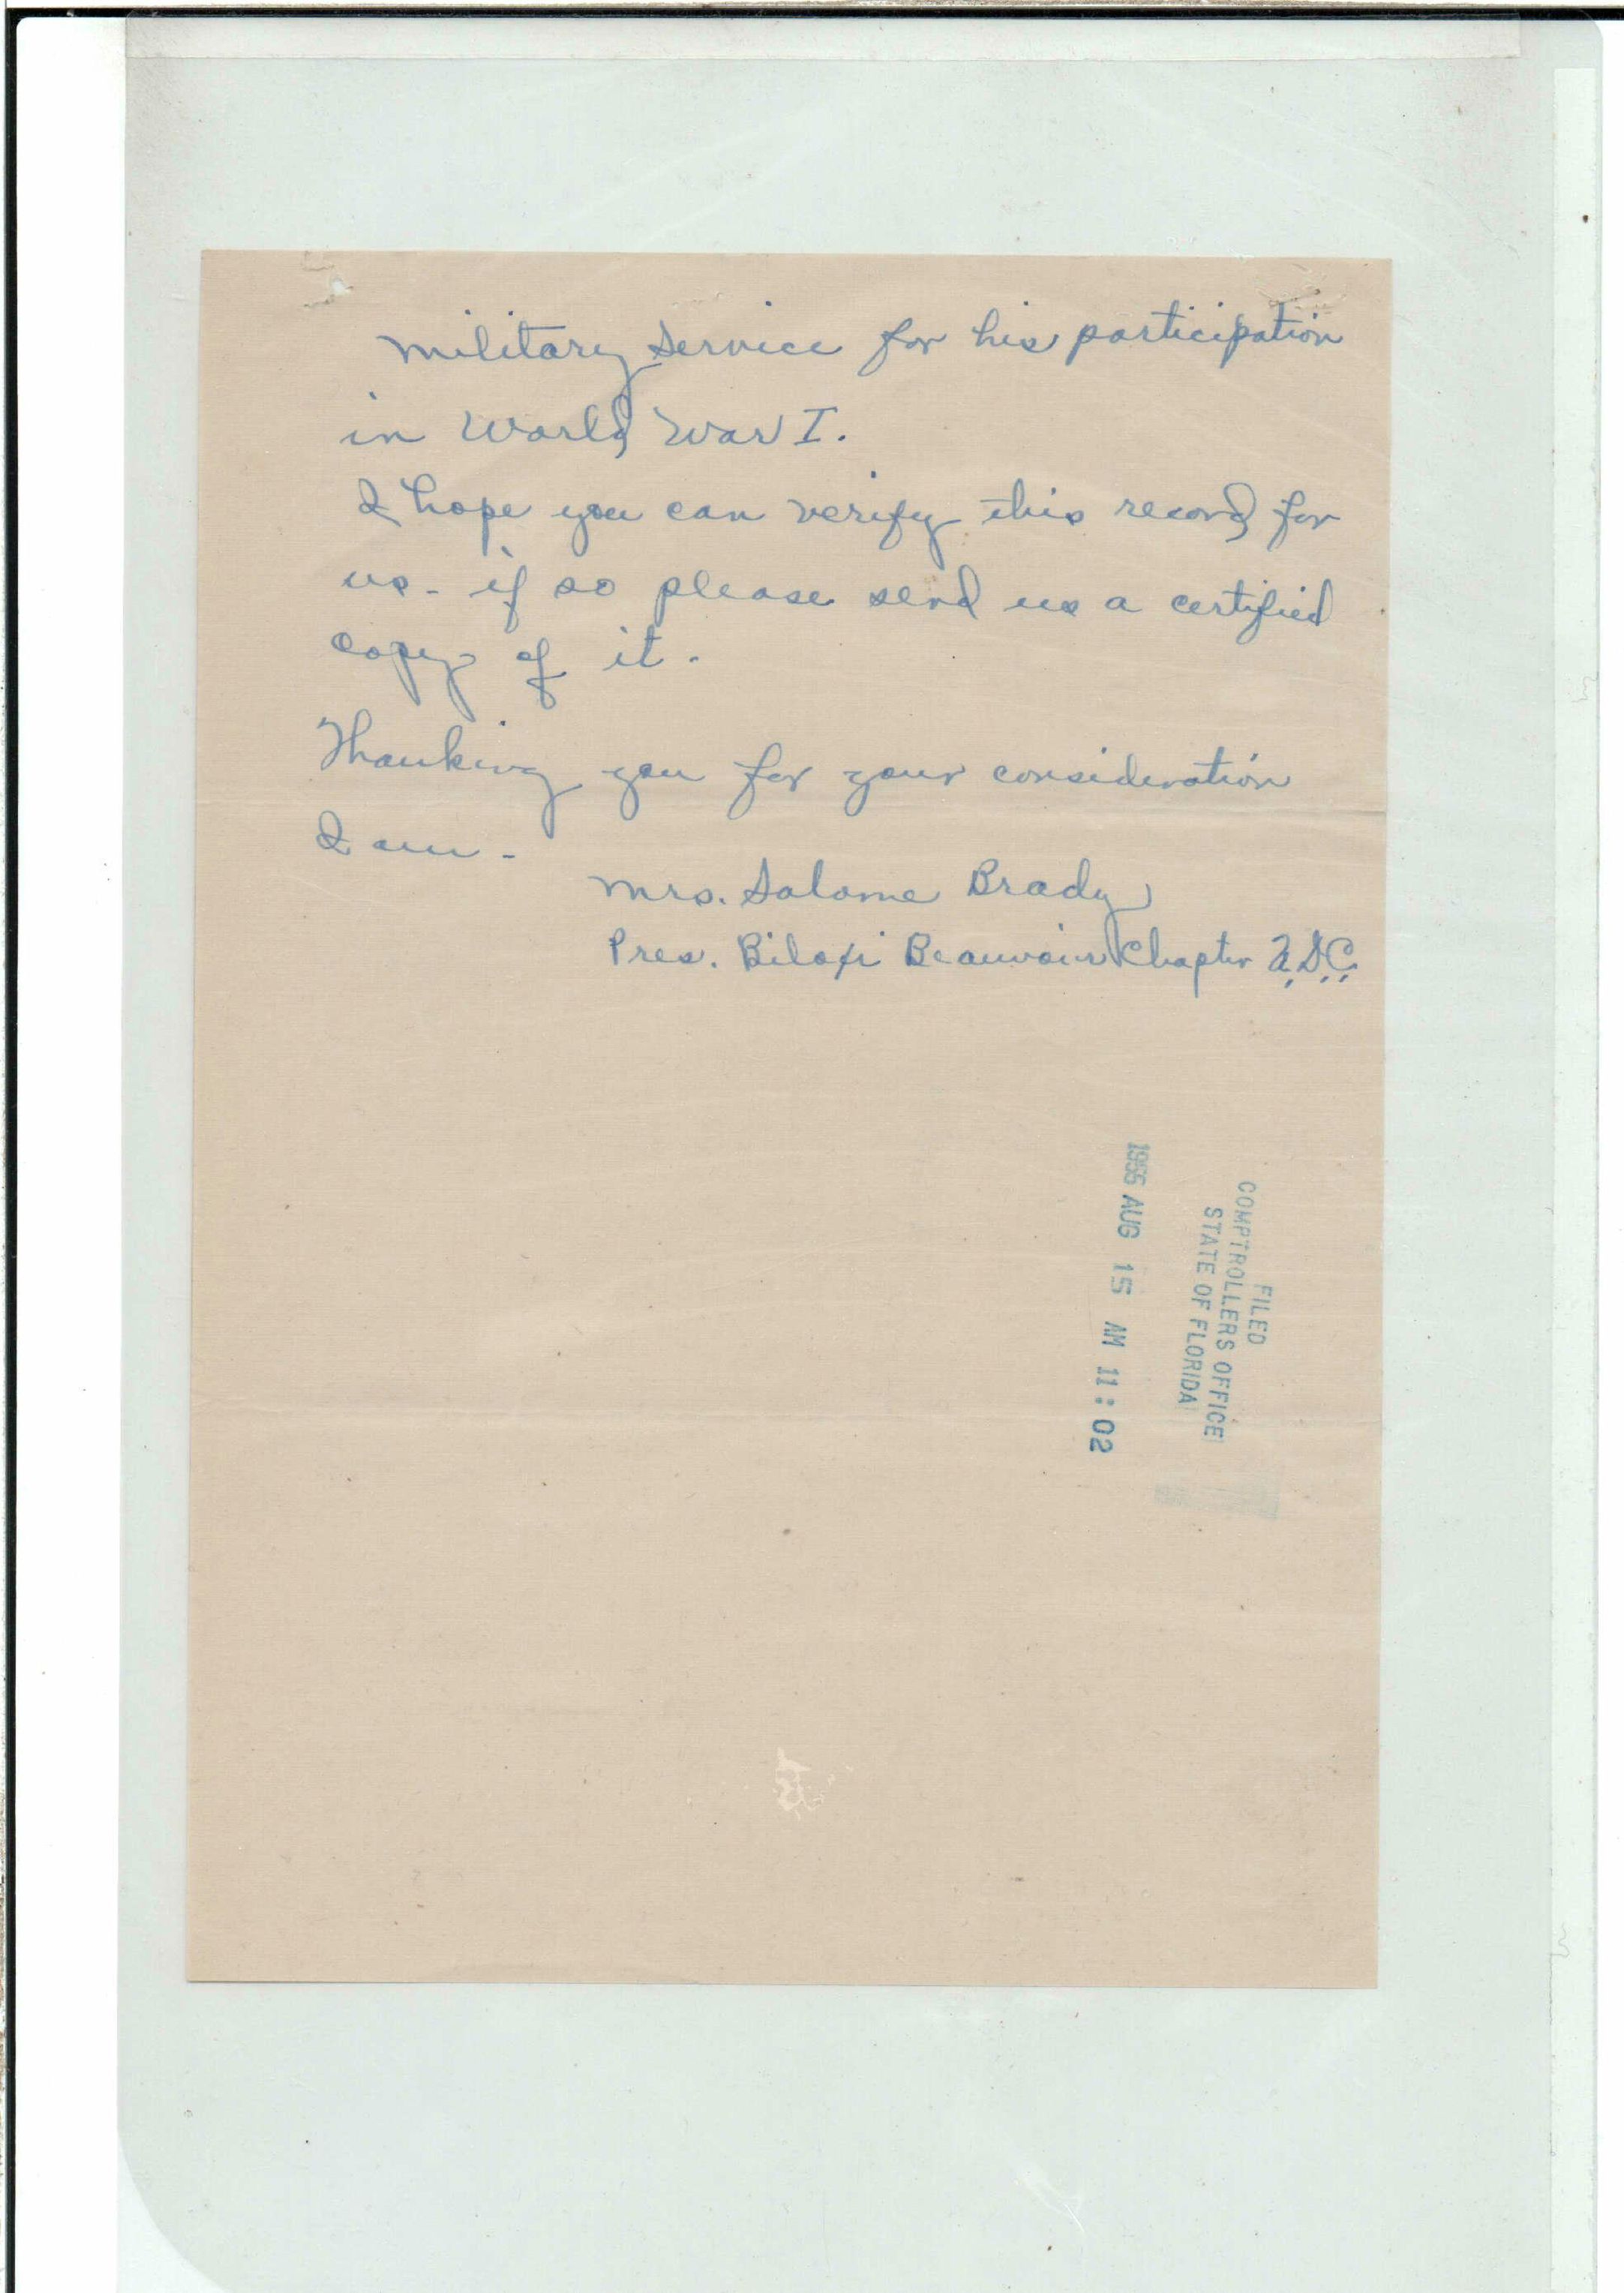 military service for his participation
in World War I.
I hope you can verify this record for
us - if so please send us a certified
copy of it.
Thanking you for your consideration
I am -
Mrs. Salome Brady
Pres. Biloxi Beauvoir Chapter U.D.C.
FILED
COMPTROLLERS OFFICE
STATE OF FLORIDA
1956 AUG 15 AM 11:02